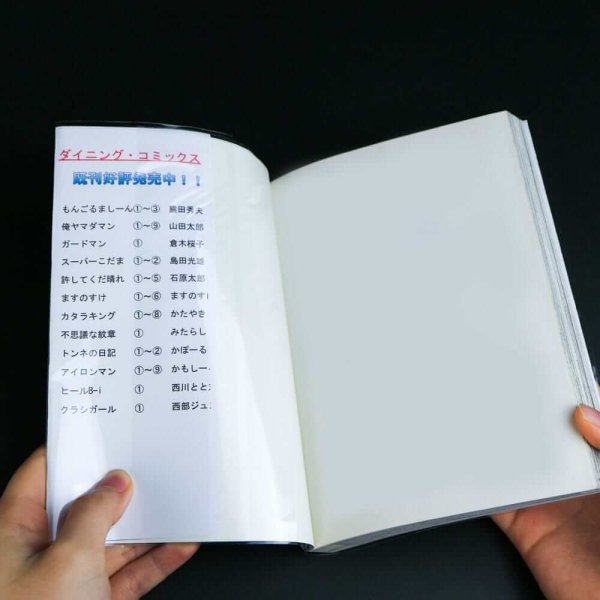 ダイニング・コミックス
既刊好評発売中！！
もんごるましーん①～③ 熊田勇夫
俺ヤマダマン ①～⑨ 山田太郎
ガードマン ① 倉木桜子
スーパーこだま ①～② 島田光雄
許してくだ晴れ ①～⑤ 石原太郎
ますのすけ ①～⑥ ますのすけ
カタラキング ①～⑧ かたやき
不思議な紋章 ① みたらし
トンネの日記 ①～② かぼーる
アイロンマン ①～⑨ かもしー
ヒールB-i ① 西川とと
クラシガール ① 西部ジュ